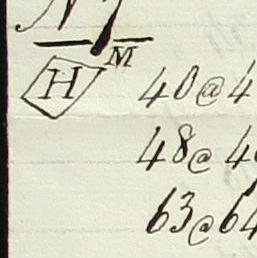 M
H 40@4
48@ 4
63@64